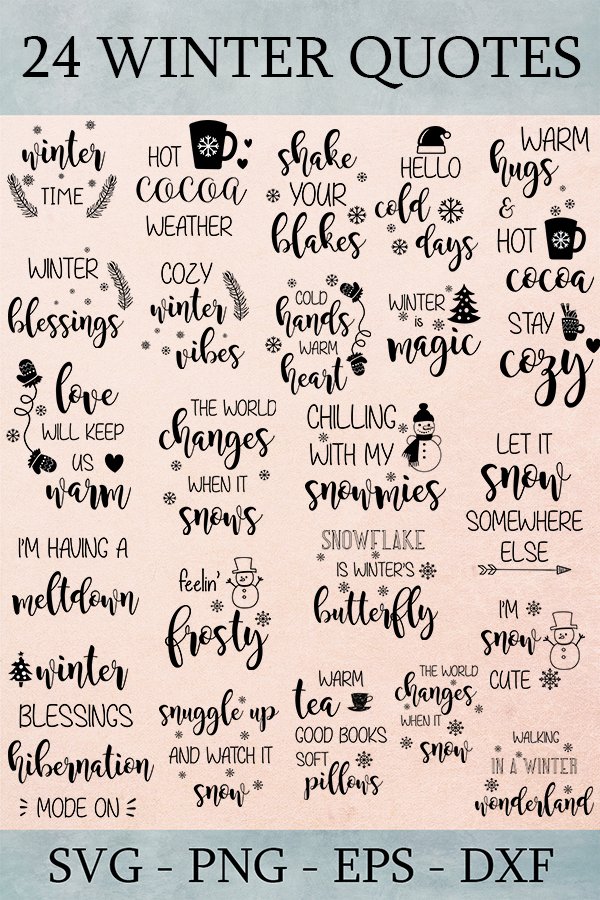 24 WINTER QUOTES
winter
TIME
HOT
cocoa
WEATHER
shake
YOUR
blakes
HELLO
cold
days
WARM
hugs
&
HOT
cocoa
WINTER
blessings
COZY
winter
vibes
COLD
hands
WARM
heart
WINTER
is
magic
STAY
cozy
love
WILL KEEP
US
warm
THE WORLD
changes
WHEN IT
snows
CHILLING
WITH MY
snowmies
LET IT
snow
SOMEWHERE
ELSE
I'M HAVING A
meltdown
feelin'
frosty
SNOWFLAKE
IS WINTER'S
butterfly
I'M
snow
CUTE
winter
BLESSINGS
hibernation
MODE ON
snuggle up
AND WATCH IT
snow
WARM
tea
GOOD BOOKS
SOFT
pillows
THE WORLD
changes
WHEN IT
snow
WALKING
IN A WINTER
wonderland
SVG - PNG - EPS - DXF